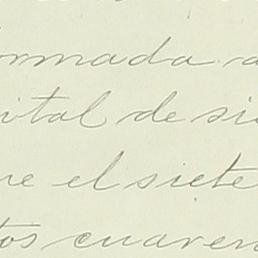 ormada a
ital de si
re el siete
tos cuaren